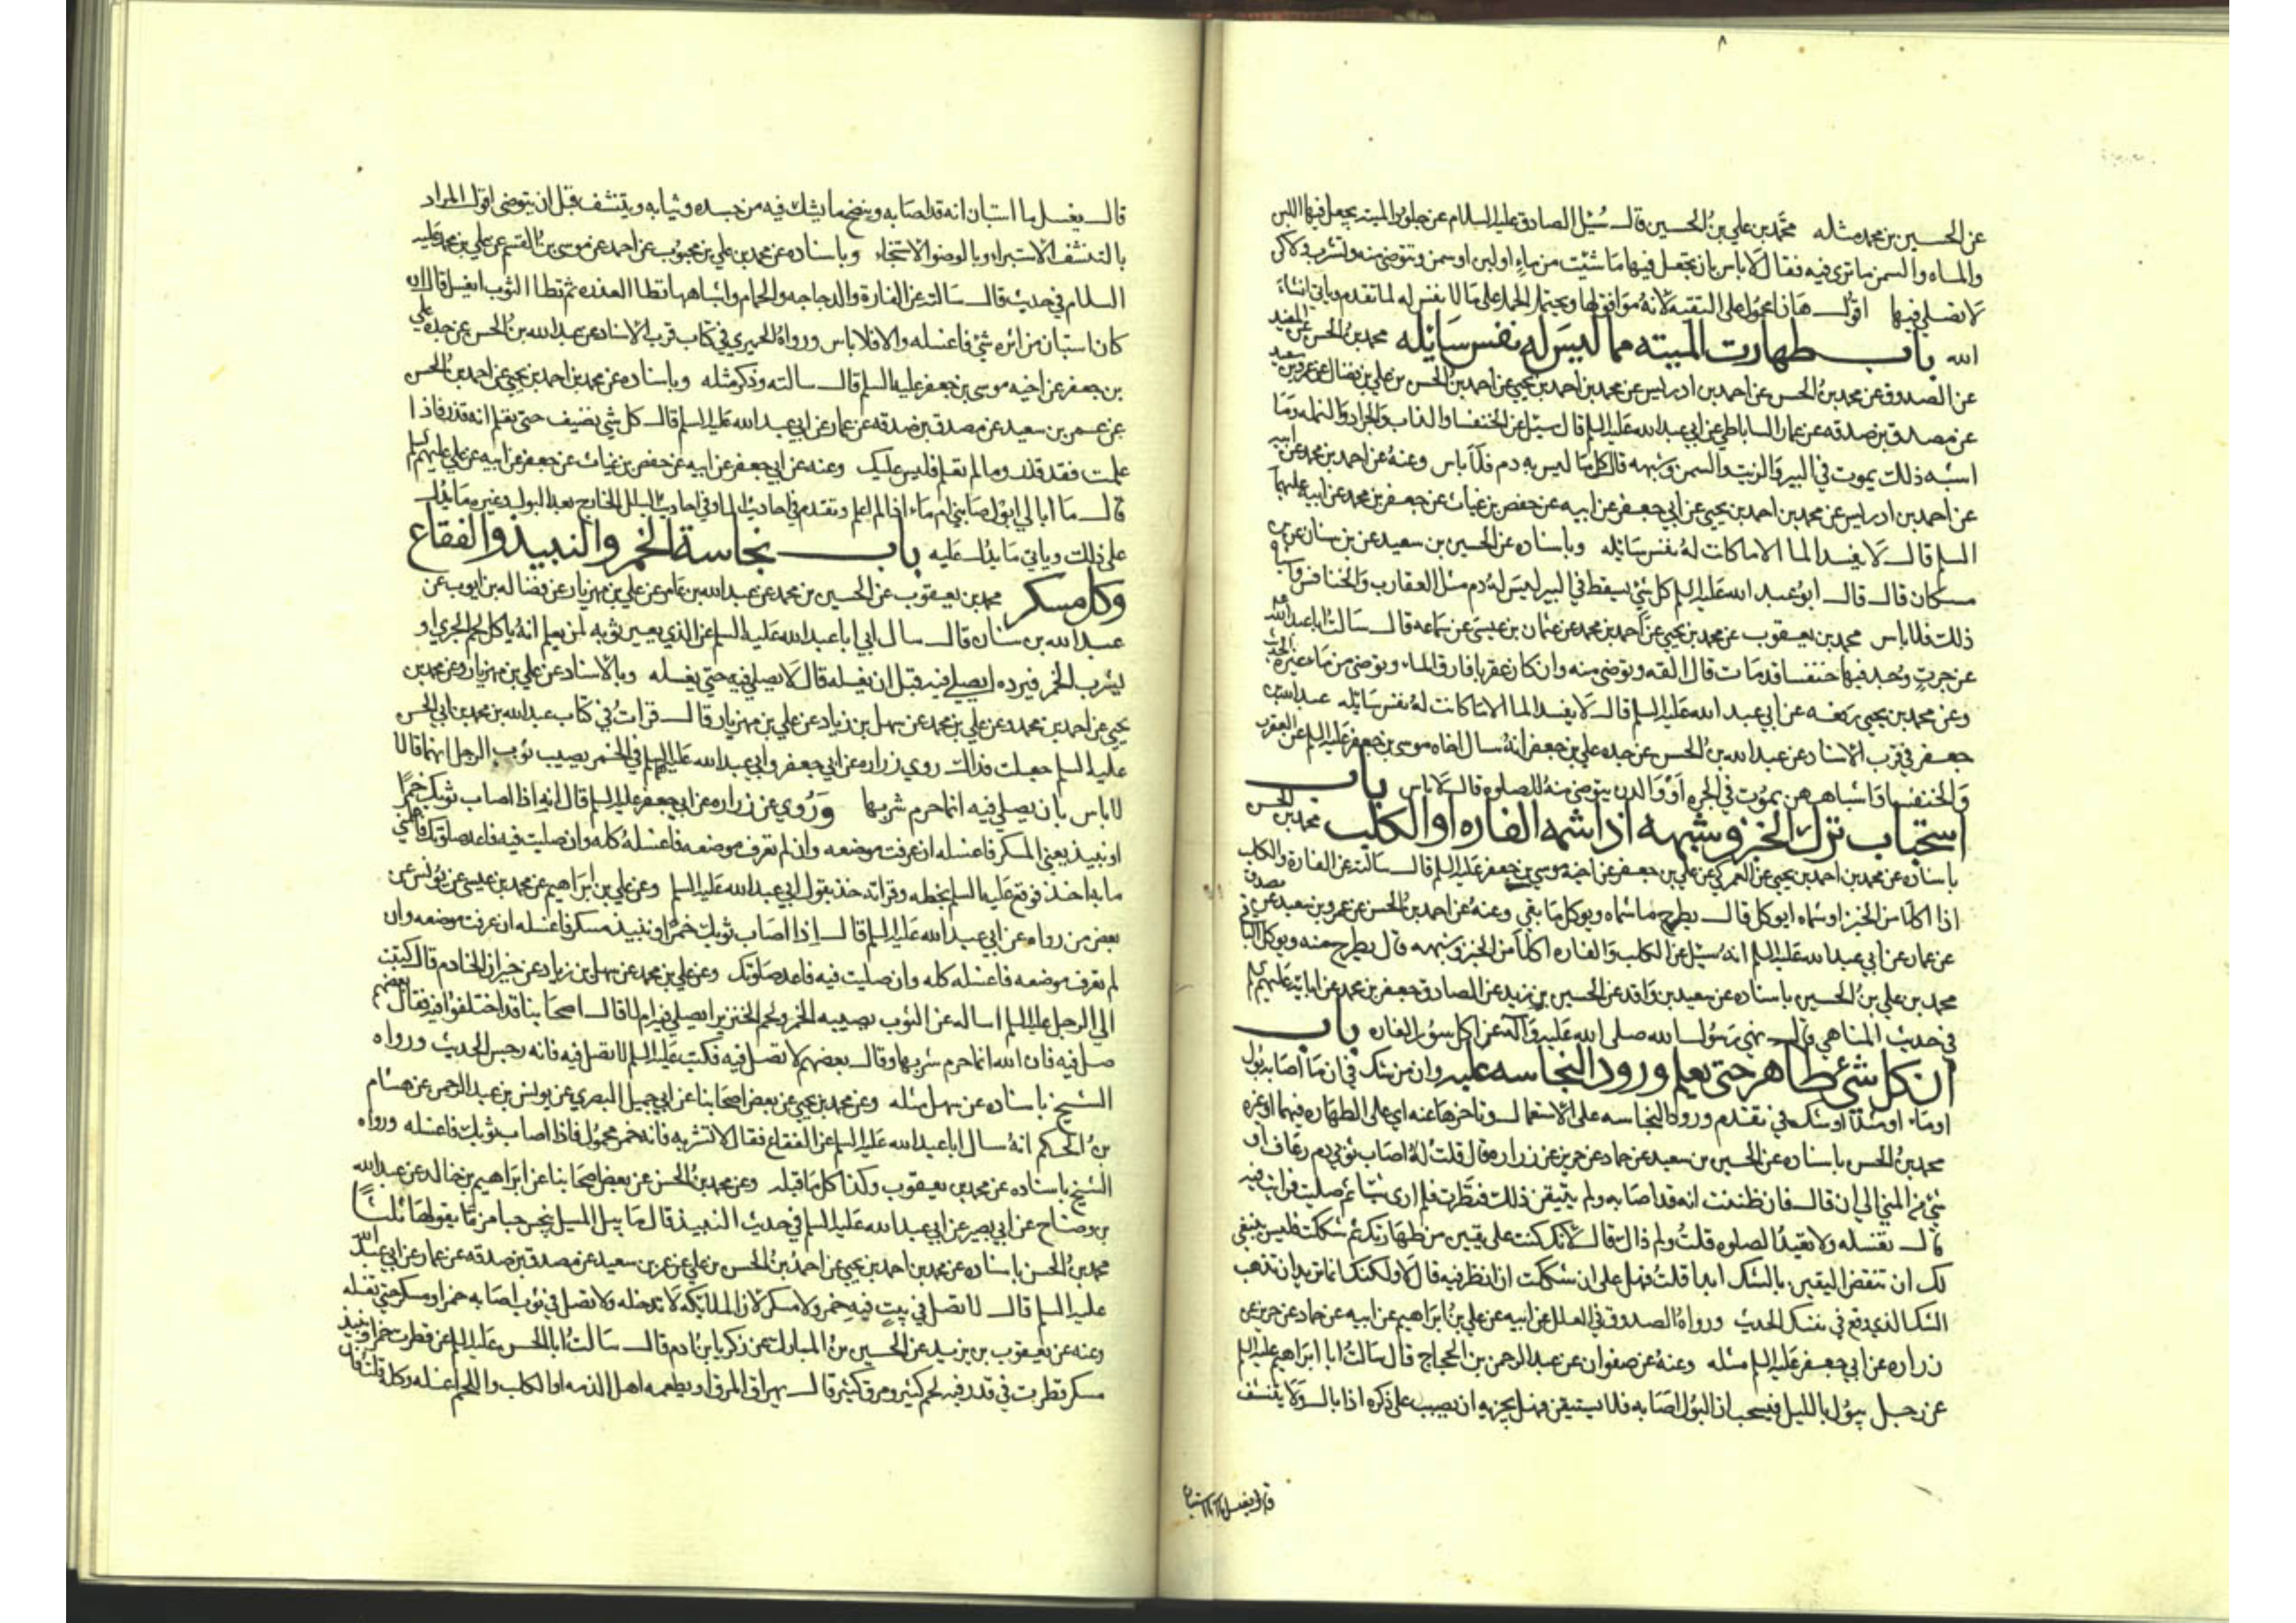 عن الحسين بن محمد مثله محمد بن علي بن الحسين قال سئل الصادق عليه السلام عن جلود الميته يجعل فيها اللبن
والماء والسمن ما ترى فيه فقال لا باس بان تجعل فيها ما شئت من ماء او لبن او سمن وتتوضى منه وتشرب ولاكن
لا تصلي فيها اقول هذا محمول على التقيه لانه موافق لها ويحتمل الحمل على ما لا نفس له لما تقدم وياتي انشاء
الله باب طهارت الميته مما ليس له نفس سايله محمد بن الحسن عن المفيد
عن الصدوق عن محمد بن الحسن عن احمد بن ادريس عن محمد بن احمد بن يحيى عن احمد بن الحسن بن علي بن فضال عن عمرو بن سعيد
عن مصدق بن صدقه عن عمار الساباطي عن ابي عبد الله عليه السلم قال سئل عن الخنفسا والذباب والجراد والنمله وما
اشبه ذلك يموت في البير والزيت والسمن وشبهه قال كل ما ليس به دم فلا باس وعنه عن احمد بن محمد عن ابيه
عن احمد بن ادريس عن محمد بن احمد بن يحيى عن ابي جعفر عن ابيه عن حفص بن غياث عن جعفر بن محمد عن ابيه عليهما
السلم قال لا يفسد الما الا ما كانت له نفس سايله وباسناده عن الحسين بن سعيد عن بن سنان عن بن
مسكان قال قال ابو عبد الله عليه السلم كل شئ يسقط في البير ليس له دم مثل العقارب والخنافس واشباه
ذلك فلا باس محمد بن يعقوب عن محمد بن يحيى عن احمد بن محمد عن عثمان بن عيسى عن سماعه قال سالت ابا عبد الله
عن جرت وجد فيها خنفسا قد مات قال القه وتوضى منه وان كان عقربا فارق الماء وتوضى من ماء غيره الحديث
وعن محمد بن يحيى رفعه عن ابي عبد الله عليه السلم قال لا يفسد الما الا ما كانت له نفس سايله عبد الله بن
جعفر في قرب الاسناد عن عبد الله بن الحسن عن جده علي بن جعفر انه سال اخاه موسى بن جعفر عليه السلم عن العقرب
والخنفسا واشباههن يموت في الجره او الدن يتوضى منه للصلوه قال لا باس باب
استحباب ترك الخبز وشبهه اذا شمه الفاره او الكلب محمد بن الحسن
باسناده عن محمد بن احمد بن يحيى عن العمركي عن علي بن جعفر عن اخيه موسى بن جعفر عليه السلم قال سالته عن الفارة والكلب
اذا اكلا من الخبز او شماه ايوكل قال يطرح ما شماه ويوكل ما بقي وعنه عن احمد بن الحسن عن عمرو بن سعيد عن مصدق
عن عمار عن ابي عبد الله عليه السلم انه سئل عن الكلب والفاره اكلا من الخبز وشبهه قال يطرح منه ويوكل الباقي
محمد بن علي بن الحسين باسناده عن سعيد بن واقد عن الحسين بن زيد عن الصادق جعفر بن محمد عن ابايه عليهم السلم
في حديث المناهي قال نهى رسول الله صلى الله عليه وآله عن اكل سؤر الفاره باب
ان كل شئ طاهر حتى يعلم ورود النجاسه عليه وان من شك في ان ما اصابه بول
او ماء او شك في تقدم ورود النجاسه على الاستعمال وتاخرها عنه اي على الطهاره فيهما او غيره
محمد بن الحسن باسناده عن الحسين بن سعيد عن حماد عن حريز عن زراره قال قلت له اصاب ثوبي دم رعاف او
شئ من المني الى ان قال فان ظننت انه قد اصابه ولم يتيقن ذلك فنظرت فلم ارى شيئا ثم صليت فرايت فيه
قال تغسله ولا تعيد الصلوه قلت ولم ذاك قال لانك كنت على يقين من طهارتك ثم شككت فليس ينبغي
لك ان تنقض اليقين بالشك ابدا قلت فهل علي ان شككت ان انظر فيه قال لا ولكنك انما تريد ان تذهب
الشك الذي وقع في نفسك الحديث ورواه الصدوق في العلل عن ابيه عن علي بن ابراهيم عن ابيه عن حماد عن حريز عن
زراره عن ابي جعفر عليه السلم مثله وعنه عن صفوان عن عبد الرحمن بن الحجاج قال سالت ابا ابراهيم عليه السلم
عن رجل يبول بالليل فيحسب ان البول اصابه فلا يستيقن فهل يجزيه ان يصب على ذكره اذا بال ولا يتنشف
قال يغسل ما استبان
قال يغسل ما استبان انه قد اصابه وينضح ما يشك فيه من جسده وثيابه ويتنشف قبل ان يتوضى اقول المراد
بالتنشف الاستبراء وبالوضو الاستنجاء وباسناده عن محمد بن علي بن محبوب عن احمد عن موسى بن القسم عن علي بن محمد عليه
السلام في حديث قال سالته عن الفارة والدجاجه والحمام واشباهها تطا العذره ثم تطا الثوب ايغسل قال ان
كان استبان من اثره شئ فاغسله والا فلا باس ورواه الحميري في كتاب قرب الاسناد عن عبد الله بن الحسن عن جده علي
بن جعفر عن اخيه موسى بن جعفر عليه السلم قال سالته وذكر مثله وباسناده عن محمد بن احمد بن يحيى عن احمد بن الحسن
عن عمرو بن سعيد عن مصدق بن صدقه عن عمار عن ابي عبد الله عليه السلم قال كل شي نضيف حتى تعلم انه قذر فاذا
علمت فقد قذر وما لم تعلم فليس عليك وعنه عن ابي جعفر عن ابيه عن حفص بن غياث عن جعفر عن ابيه عن علي عليهم السلم
قال ما ابالي ابول اصابني ام ماء اذا لم اعلم وتقدم في احاديث الماء وفي احاديث البلل الخارج بعد البول وغير ما يدل
على ذلك وياتي ما يدل عليه باب نجاسة الخمر والنبيذ والفقاع
وكل مسكر محمد بن يعقوب عن الحسين بن محمد عن عبد الله بن عامر عن علي بن مهزيار عن فضاله بن ايوب عن
عبد الله بن سنان قال سال ابي ابا عبد الله عليه السلم عن الذي يعير ثوبه لمن يعلم انه ياكل لحم الجري او
يشرب الخمر فيرده ايصلي فيه قبل ان يغسله قال لا يصلي فيه حتى يغسله وبالاسناد عن علي بن مهزيار وعن محمد بن
يحيى عن احمد بن محمد وعن علي بن محمد عن سهل بن زياد عن علي بن مهزيار قال قرات في كتاب عبد الله بن محمد بن ابي الحسن
عليه السلم جعلت فداك روي زراره عن ابي جعفر وابي عبد الله عليهما السلم في الخمر يصيب ثوب الرجل انهما قالا
لا باس بان يصلي فيه انما حرم شربها وروي عن زراره عن ابي جعفر عليه السلم قال انه اذا اصاب ثوبك خمرا
او نبيذ يعني المسكر فاغسله ان عرفت موضعه وان لم تعرف موضعه فاغسله كله وان صليت فيه فاعد صلوتك فاعلمني
ما به اخذ فوقع عليه السلم بخطه وقراته خذ بقول ابي عبد الله عليه السلم وعن علي بن ابراهيم عن محمد بن عيسى عن يونس عن
بعض من رواه عن ابي عبد الله عليه السلم قال اذا اصاب ثوبك خمرا او نبيذ مسكر فاغسله ان عرفت موضعه وان
لم تعرف موضعه فاغسله كله وان صليت فيه فاعد صلوتك وعن علي بن محمد عن سهل بن زياد عن خيران الخادم قال كتبت
الى الرجل عليه السلم اساله عن الثوب يصيبه الخمر ولحم الخنزير ايصلي فيه ام لا قال اصحابنا قد اختلفوا فيه فقال بعضهم
صل فيه فان الله انما حرم شربها وقال بعضهم لا تصل فيه فكتب عليه السلم لا تصل فيه فانه رجس الحديث ورواه
الشيخ باسناده عن سهل مثله وعن محمد بن يحيى عن بعض اصحابنا عن ابي جميل البصري عن يونس بن عبد الرحمن عن هشام
بن الحكم انه سال ابا عبد الله عليه السلم عن الفقاع فقال لا تشربه فانه خمر مجهول فاذا اصاب ثوبك فاغسله ورواه
الشيخ باسناده عن محمد بن يعقوب وكذا كل ما قبله وعن محمد بن الحسن عن بعض اصحابنا عن ابراهيم بن خالد عن عبد الله
بن وضاح عن ابي بصير عن ابي عبد الله عليه السلم في حديث النبيذ قال ما يبل الميل ينجس حبا من ماء يقولها ثلثا
محمد بن الحسن باسناده عن محمد بن احمد بن يحيى عن احمد بن الحسن بن علي عن عمرو بن سعيد عن مصدق بن صدقه عن عمار عن ابي عبد الله
عليه السلم قال لا تصل في بيت فيه خمر ولا مسكر لان الملايكه لا تدخله ولا تصل في ثوب اصابه خمر او مسكر حتى تغسله
وعنه عن يعقوب بن يزيد عن الحسين بن المبارك عن زكريا بن ادم قال سالت ابا الحسن عليه السلم عن قطرت خمر او نبيذ
مسكر قطرت في قدر فيه لحم كثير ومرق كثير قال يهراق المرق او يطعمه اهل الذمه او الكلب واللحم اغسله وكله قلت فان